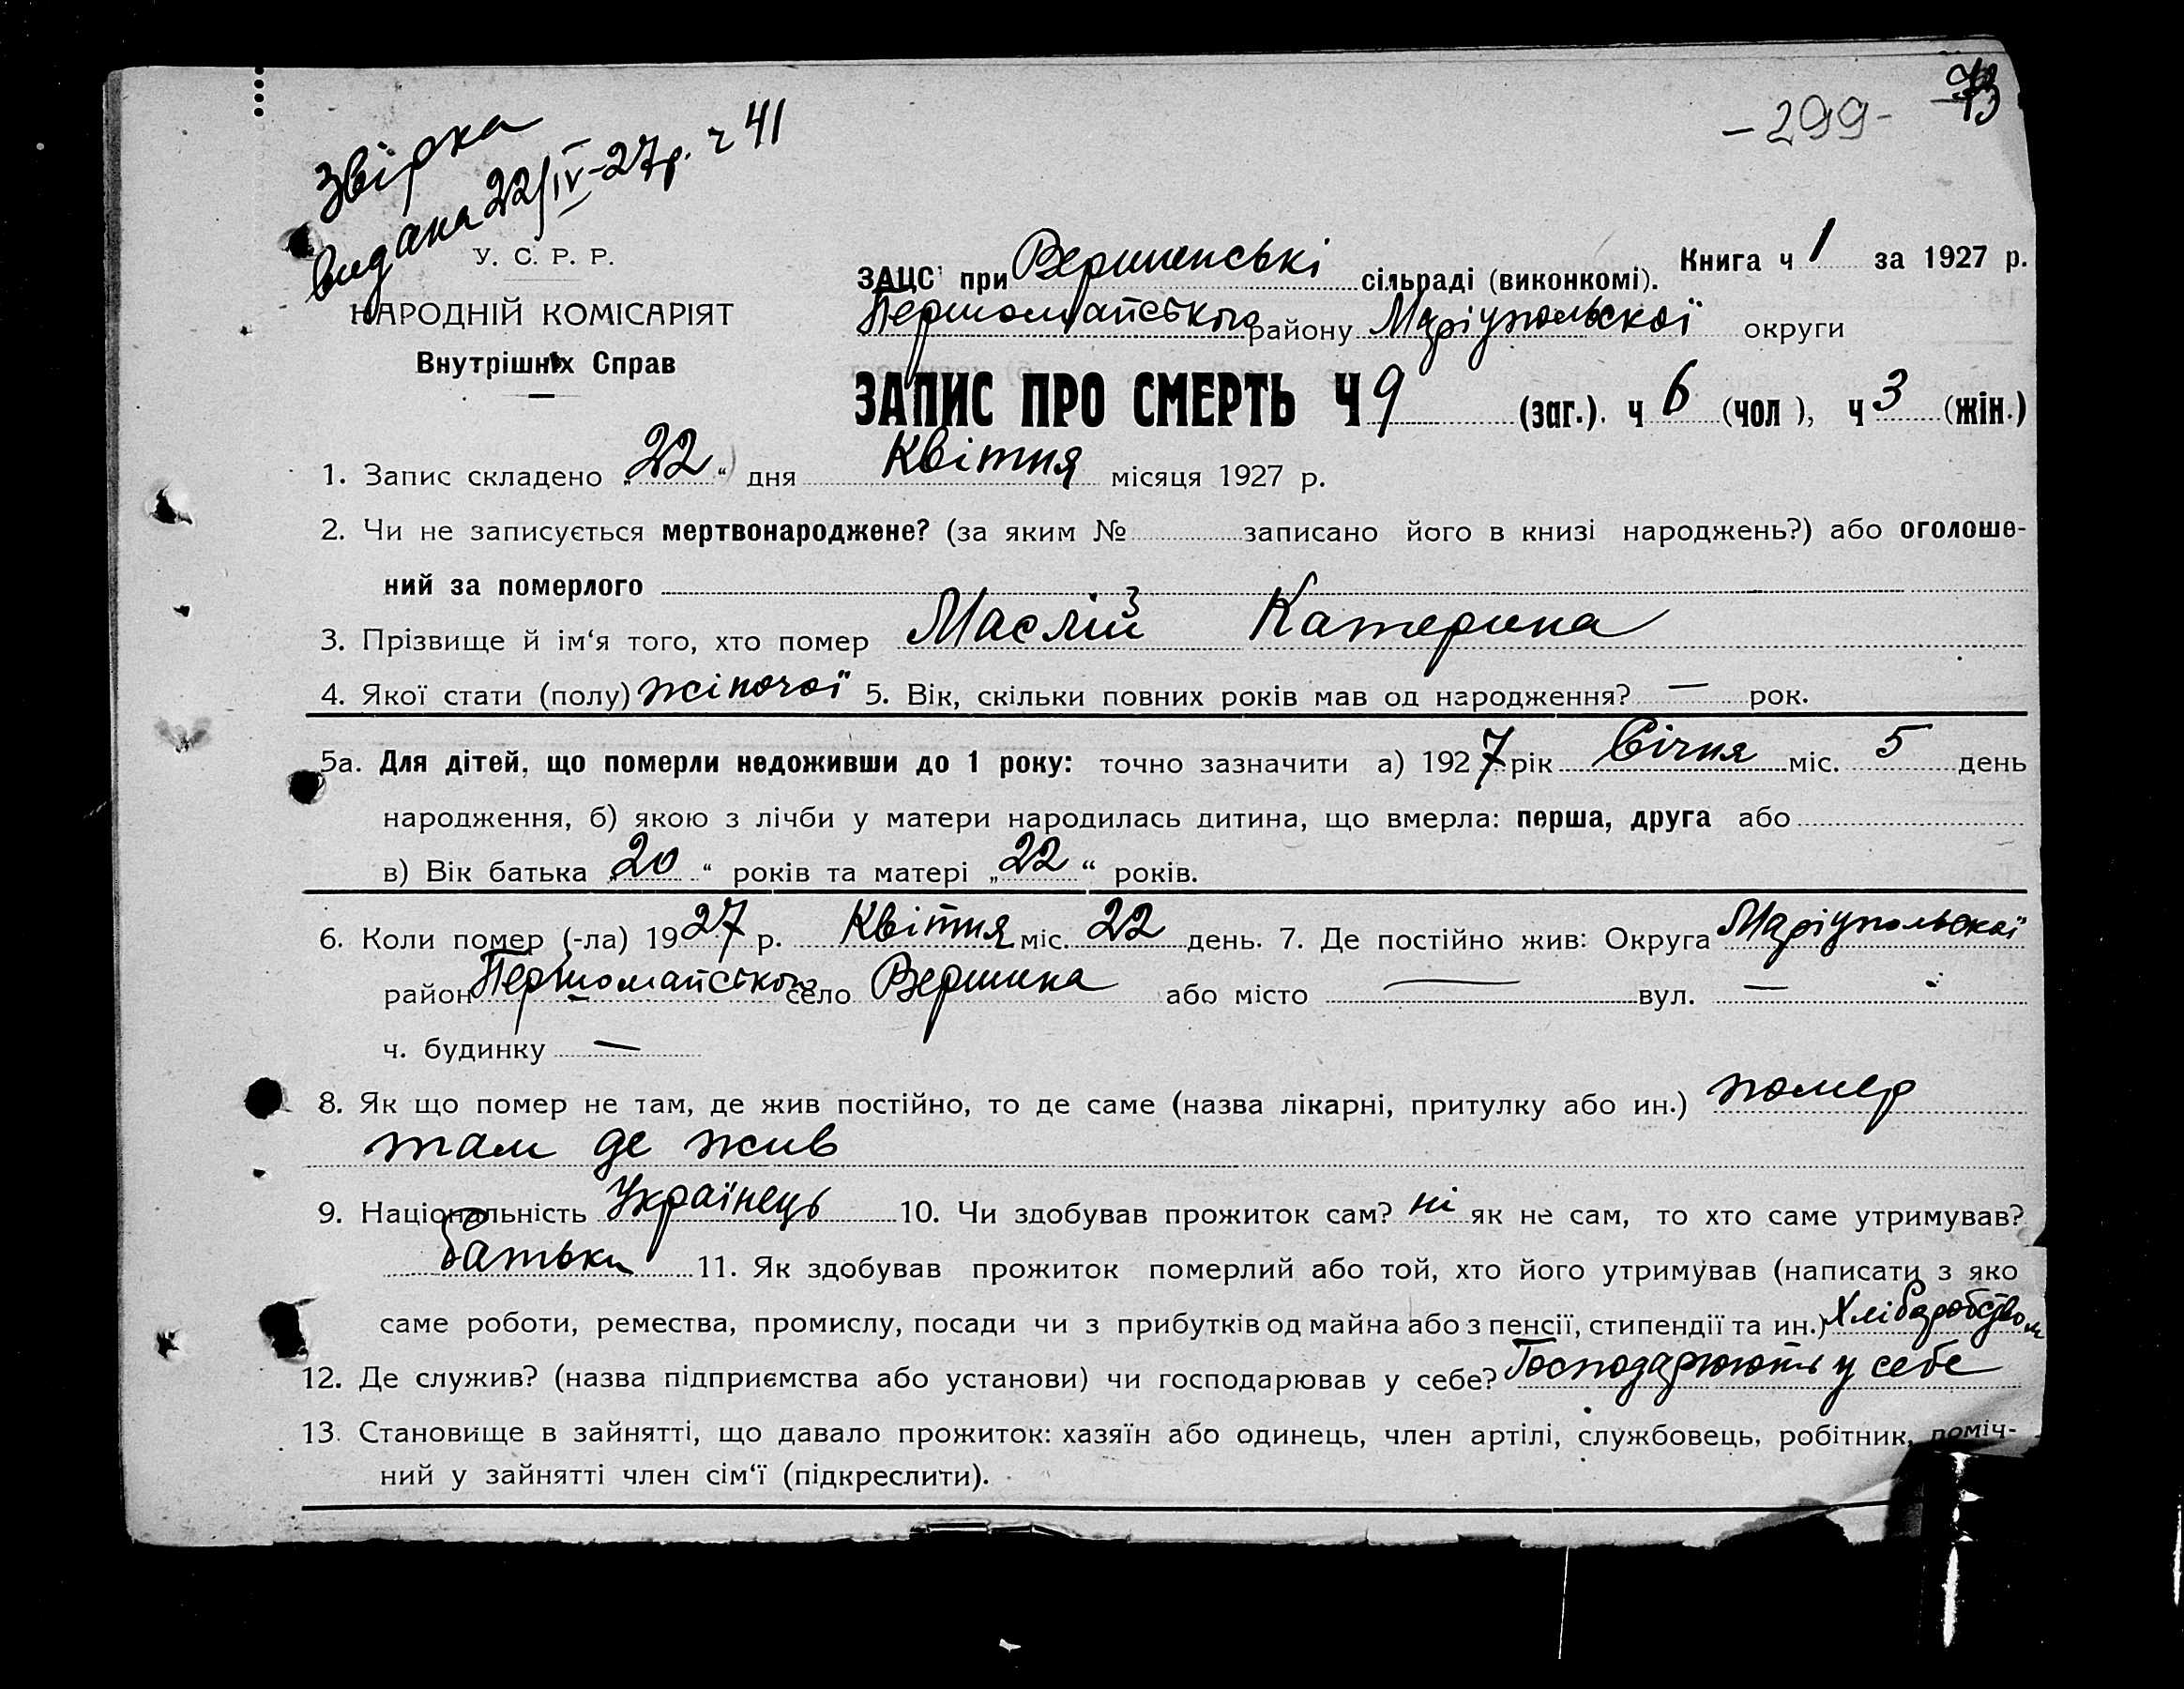 -299- 73
Звірка
видана 22/IV-27р. ч 41
У. С. Р. Р.
НАРОДНІЙ КОМІСАРІЯТ
Внутрішніх Справ
Книга ч 1 за 1927 р.
ЗАЦС при Вершинські сільраді (виконкомі).
Першомайського району Маріупольскої округи
ЗАПИС ПРО СМЕРТЬ Ч 9 (заг.). ч 6 (чол ), ч 3 (жін.)
1. Запис складено „22“ дня Квітня місяця 1927 р.
2. Чи не записується мертвонароджене? (за яким № записано його в книзі народжень?) або оголоше-
ний за померлого
3. Прізвище й ім‘я того, хто помер Маслій Катерина
4. Якої стати (полу) жіночої 5. Вік, скільки повних років мав од народження? — рок.
5а. Для дітей, що померли недоживши до 1 року: точно зазначити а) 1927 рік Січня міс. 5 день
народження, б) якою з лічби у матери народилась дитина, що вмерла: перша, друга або
в) Вік батька „20“ років та матері „22“ років.
6. Коли помер (-ла) 1927 р. Квітня міс. 22 день. 7. Де постійно жив: Округа Маріупольскої
район Першомайського село Вершина або місто — вул. —
ч. будинку —
8. Як що помер не там, де жив постійно, то де саме (назва лікарні, притулку або ин.) помер
там де жив
9. Національність Українець 10. Чи здобував прожиток сам? ні як не сам, то хто саме утримував?
батьки 11. Як здобував прожиток померлий або той, хто його утримував (написати з яко
саме роботи, ремества, промислу, посади чи з прибутків од майна або з пенсії, стипендії та ин.) Хліборобством
12. Де служив? (назва підприємства або установи) чи господарював у себе? Господарюють у себе
13. Становище в зайнятті, що давало прожиток: хазяїн або одинець, член артілі, службовець, робітник, поміч-
ний у зайнятті член сім‘ї (підкреслити).